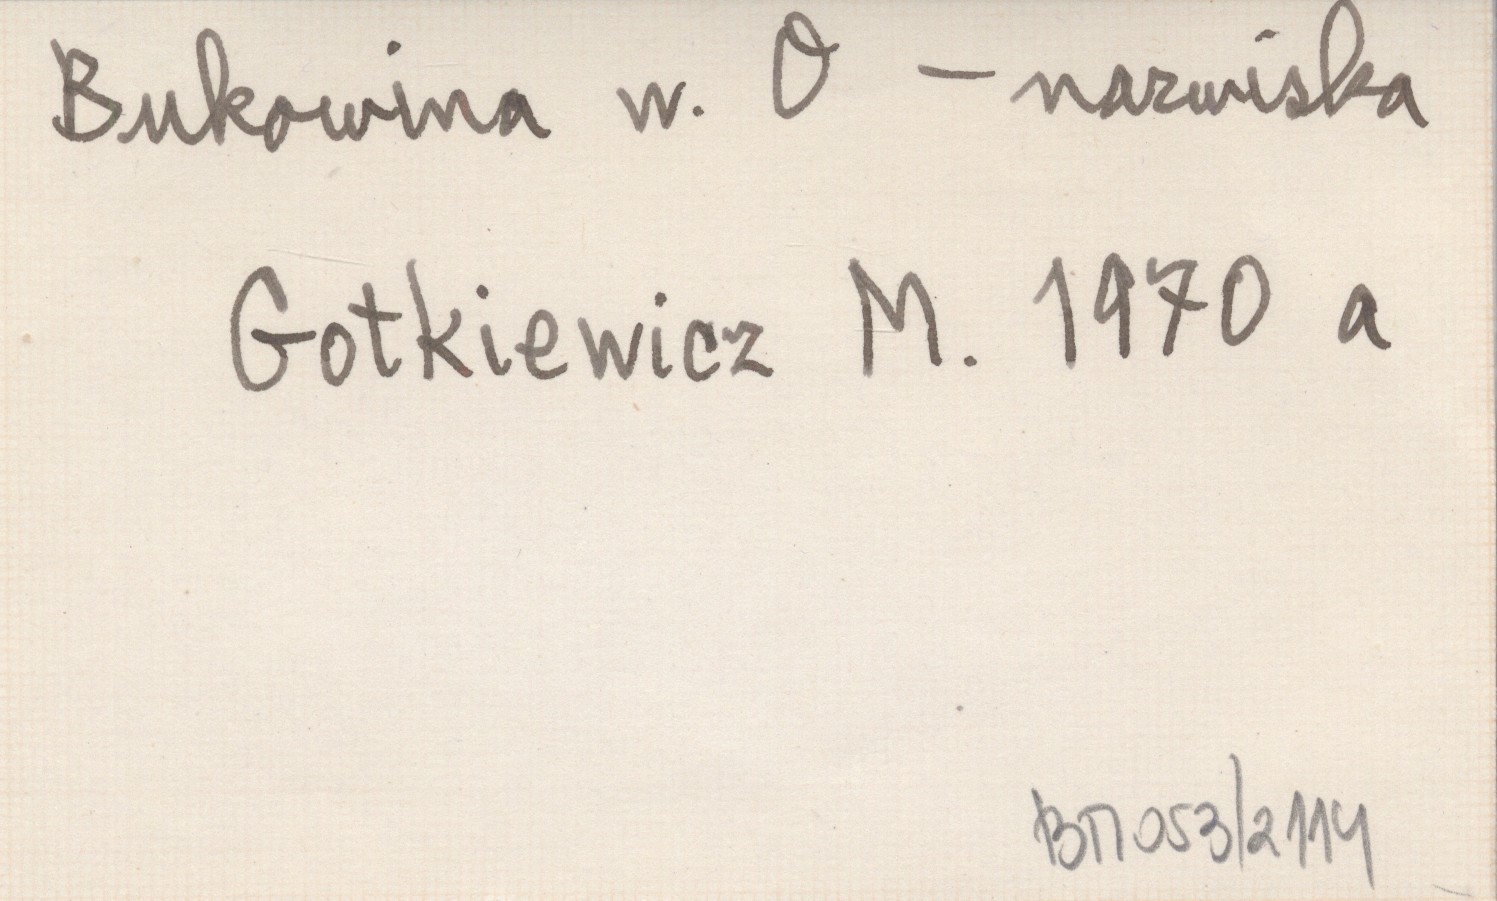 Bukowina w. O – nazwiska
Gotkiewicz M. 1970 a
BП053/2114